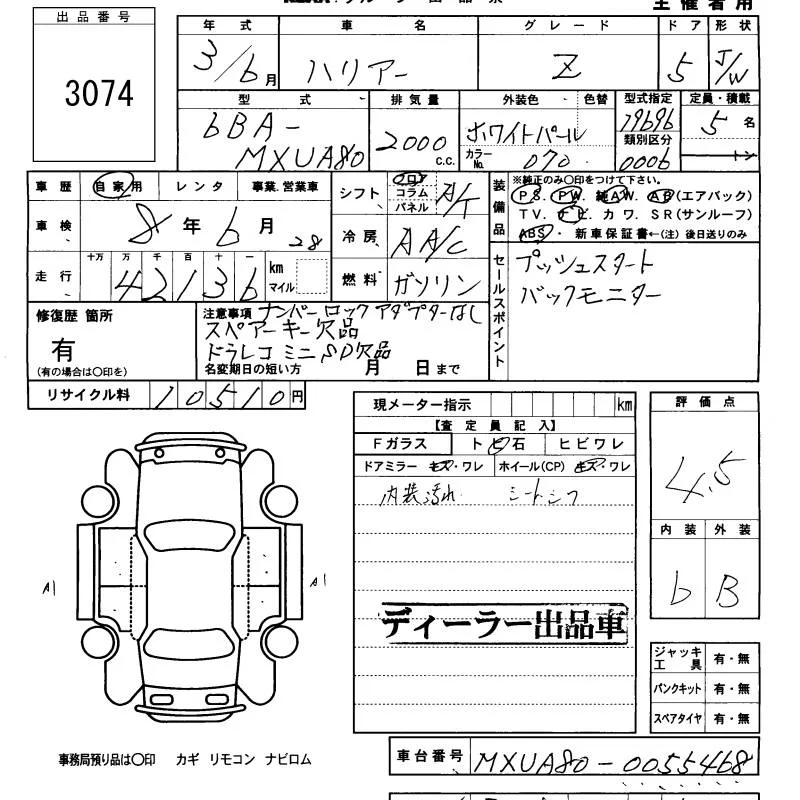 主催者用
出品番号
3074
年式 車名 グレード ドア 形状
3/6月 ハリアー Z 5 J/W
型式 排気量 外装色 色替 型式指定 定員・積載
6BA-MXUA80 2000 c.c. ホワイトパール 19696 5名
カラーNo. 070 類別区分 0006 トン
車歴 自家用 レンタ 事業.営業車
シフト フロア コラム パネル A/T
車検 8年6月28
冷房 AA/C
走行 十万 万 千 百 十 一
42136 km マイル
燃料 ガソリン
装備品
※純正のみ○印をつけて下さい。
PS. PW. 純AW. AB(エアバック)
TV. ナビ カワ. SR(サンルーフ)
ABS・ 新車保証書←(注) 後日送りのみ
セールスポイント
プッシュスタート
バックモニター
修復歴 箇所
有
(有の場合は○印を)
注意事項 ナンバーロックアダプターなし
スペアーキー欠品
ドラレコミニSD欠品
名変期日の短い方 月 日まで
リサイクル料 10510円
現メーター指示 km
【査定員記入】
Fガラス トビ石 ヒビワレ
ドアミラー キズ・ワレ ホイール(CP) キズ・ワレ
内装汚れ シートシワ
ディーラー出品車
評価点
4.5
内装 外装
b B
A1 A1
ジャッキ工具 有・無
パンクキット 有・無
スペアタイヤ 有・無
事務局預り品は○印 カギ リモコン ナビロム
車台番号 MXUA80-0055468